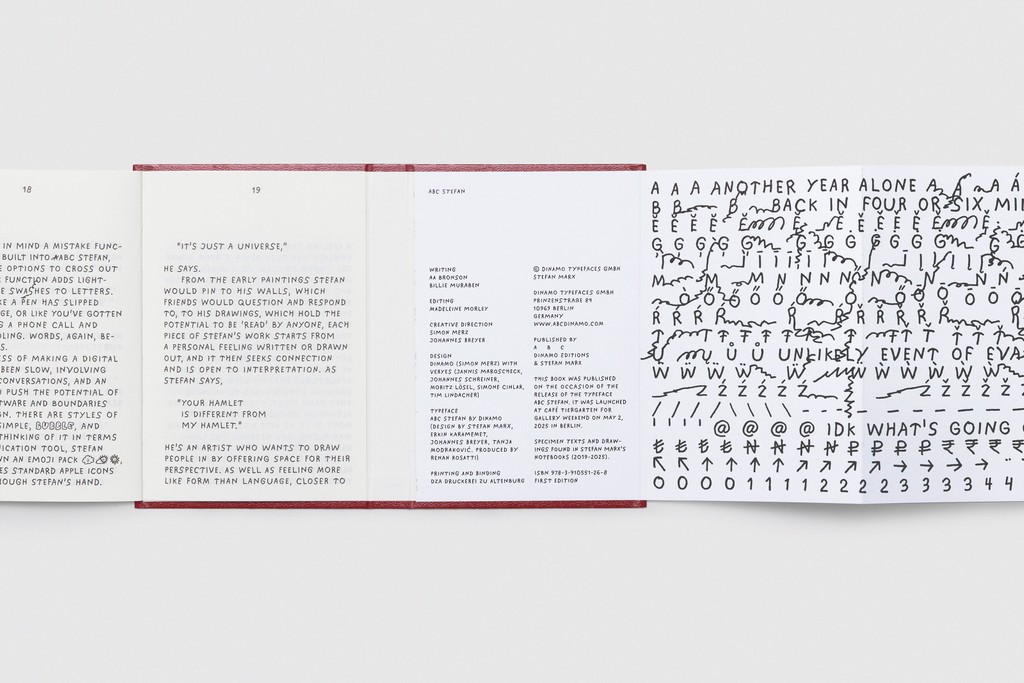 18
IN MIND A MISTAKE FUNC-
BUILT INTO ABC STEFAN,
E OPTIONS TO CROSS OUT
FUNCTION ADDS LIGHT-
E SWASHES TO LETTERS.
KE A PEN HAS SLIPPED
GE, OR LIKE YOU'VE GOTTEN
G A PHONE CALL AND
DLING. WORDS, AGAIN, BE-
S.
ESS OF MAKING A DIGITAL
BEEN SLOW, INVOLVING
CONVERSATIONS, AND AN
O PUSH THE POTENTIAL OF
TWARE AND BOUNDARIES
GN. THERE ARE STYLES OF
SIMPLE, BUBBLE, AND
THINKING OF IT IN TERMS
NICATION TOOL, STEFAN
WN AN EMOJI PACK
ES STANDARD APPLE ICONS
OUGH STEFAN'S HAND.
19
"IT'S JUST A UNIVERSE,"
HE SAYS.
FROM THE EARLY PAINTINGS STEFAN
WOULD PIN TO HIS WALLS, WHICH
FRIENDS WOULD QUESTION AND RESPOND
TO, TO HIS DRAWINGS, WHICH HOLD THE
POTENTIAL TO BE 'READ' BY ANYONE, EACH
PIECE OF STEFAN'S WORK STARTS FROM
A PERSONAL FEELING WRITTEN OR DRAWN
OUT, AND IT THEN SEEKS CONNECTION
AND IS OPEN TO INTERPRETATION. AS
STEFAN SAYS,
"YOUR HAMLET
IS DIFFERENT FROM
MY HAMLET."
HE'S AN ARTIST WHO WANTS TO DRAW
PEOPLE IN BY OFFERING SPACE FOR THEIR
PERSPECTIVE. AS WELL AS FEELING MORE
LIKE FORM THAN LANGUAGE, CLOSER TO
ABC STEFAN
WRITING
AA BRONSON
BILLIE MURABEN
EDITING
MADELEINE MORLEY
CREATIVE DIRECTION
SIMON MERZ
JOHANNES BREYER
DESIGN
DINAMO (SIMON MERZ) WITH
VERYES (JANNIS MABOSCHECK,
JOHANNES SCHREINER,
MORITZ LÖSEL, SIMONE CIHLAR,
TIM LINDACHER)
TYPEFACE
ABC STEFAN BY DINAMO
(DESIGN BY STEFAN MARX,
ERKIN KARAMEMET,
JOHANNES BREYER, TANJA
MODRAKOVIĆ. PRODUCED BY
RENAN ROSATTI)
PRINTING AND BINDING
DZA DRUCKEREI ZU ALTENBURG
© DINAMO TYPEFACES GMBH
STEFAN MARX
DINAMO TYPEFACES GMBH
PRINZENSTRAßE 84
10969 BERLIN
GERMANY
WWW.ABCDINAMO.COM
PUBLISHED BY
A B C
DINAMO EDITIONS
& STEFAN MARX
THIS BOOK WAS PUBLISHED
ON THE OCCASION OF THE
RELEASE OF THE TYPEFACE
ABC STEFAN. IT WAS LAUNCHED
AT CAFÉ TIERGARTEN FOR
GALLERY WEEKEND ON MAY 2,
2025 IN BERLIN.
SPECIMEN TEXTS AND DRAW-
INGS FOUND IN STEFAN MARX'S
NOTEBOOKS (2019–2025).
ISBN 978-3-910551-26-8
FIRST EDITION
A A A ANOTHER YEAR ALONE A A Á
BACK IN FOUR OR SIX MIN
U Ů Ů UNLIKELY EVENT OF EVA
@ @ @ @ IDK WHAT'S GOING
↖ ↖ ↖ ↑ ↑ ↑ ↑ ↗ ↗ ↗ ↗ → → → →
0 0 0 0 1 1 1 1 2 2 2 2 3 3 3 3 4 4